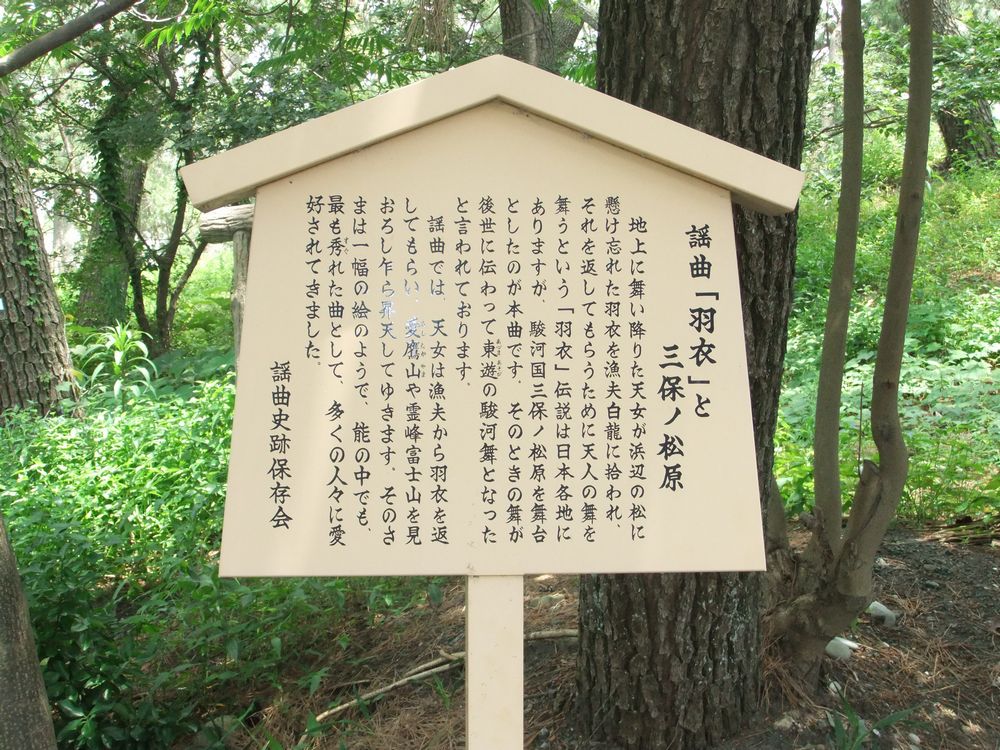 謡曲「羽衣」と
三保ノ松原
地上に舞い降りた天女が浜辺の松に
懸け忘れた羽衣を漁夫白龍に拾われ、
それを返してもらうために天人の舞を
舞うという「羽衣」伝説は日本各地に
ありますが、駿河国三保ノ松原を舞台
としたのが本曲です。そのときの舞が
後世に伝わって東遊の駿河舞となった
と言われております。
謡曲では、天女は漁夫から羽衣を返
してもらい、愛鷹山や霊峰富士山を見
おろし乍ら昇天してゆきます。そのさ
まは一幅の絵のようで、能の中でも、
最も秀れた曲として、多くの人々に愛
好されてきました。
謡曲史跡保存会